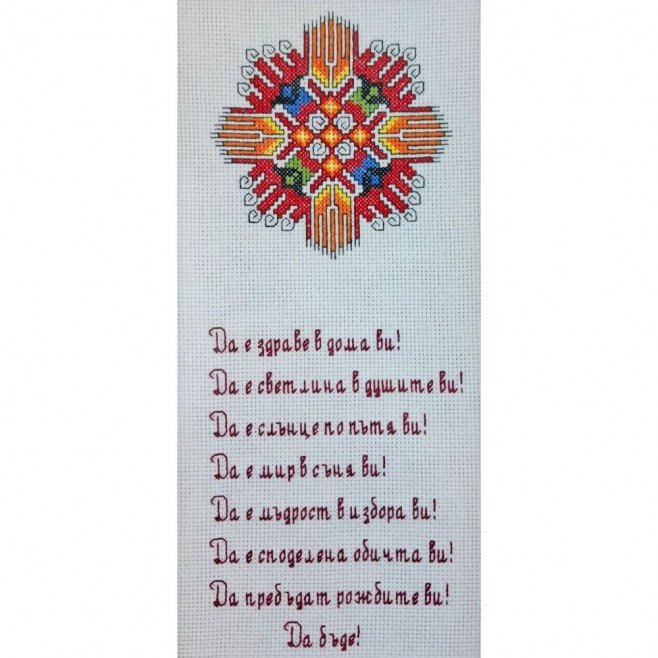 Да е здраве в дома ви!
Да е светлина в душите ви!
Да е слънце по пътя ви!
Да е мир в съня ви!
Да е мъдрост в избора ви!
Да е споделена обичта ви!
Да пребъдат рожбите ви!
Да бъде!